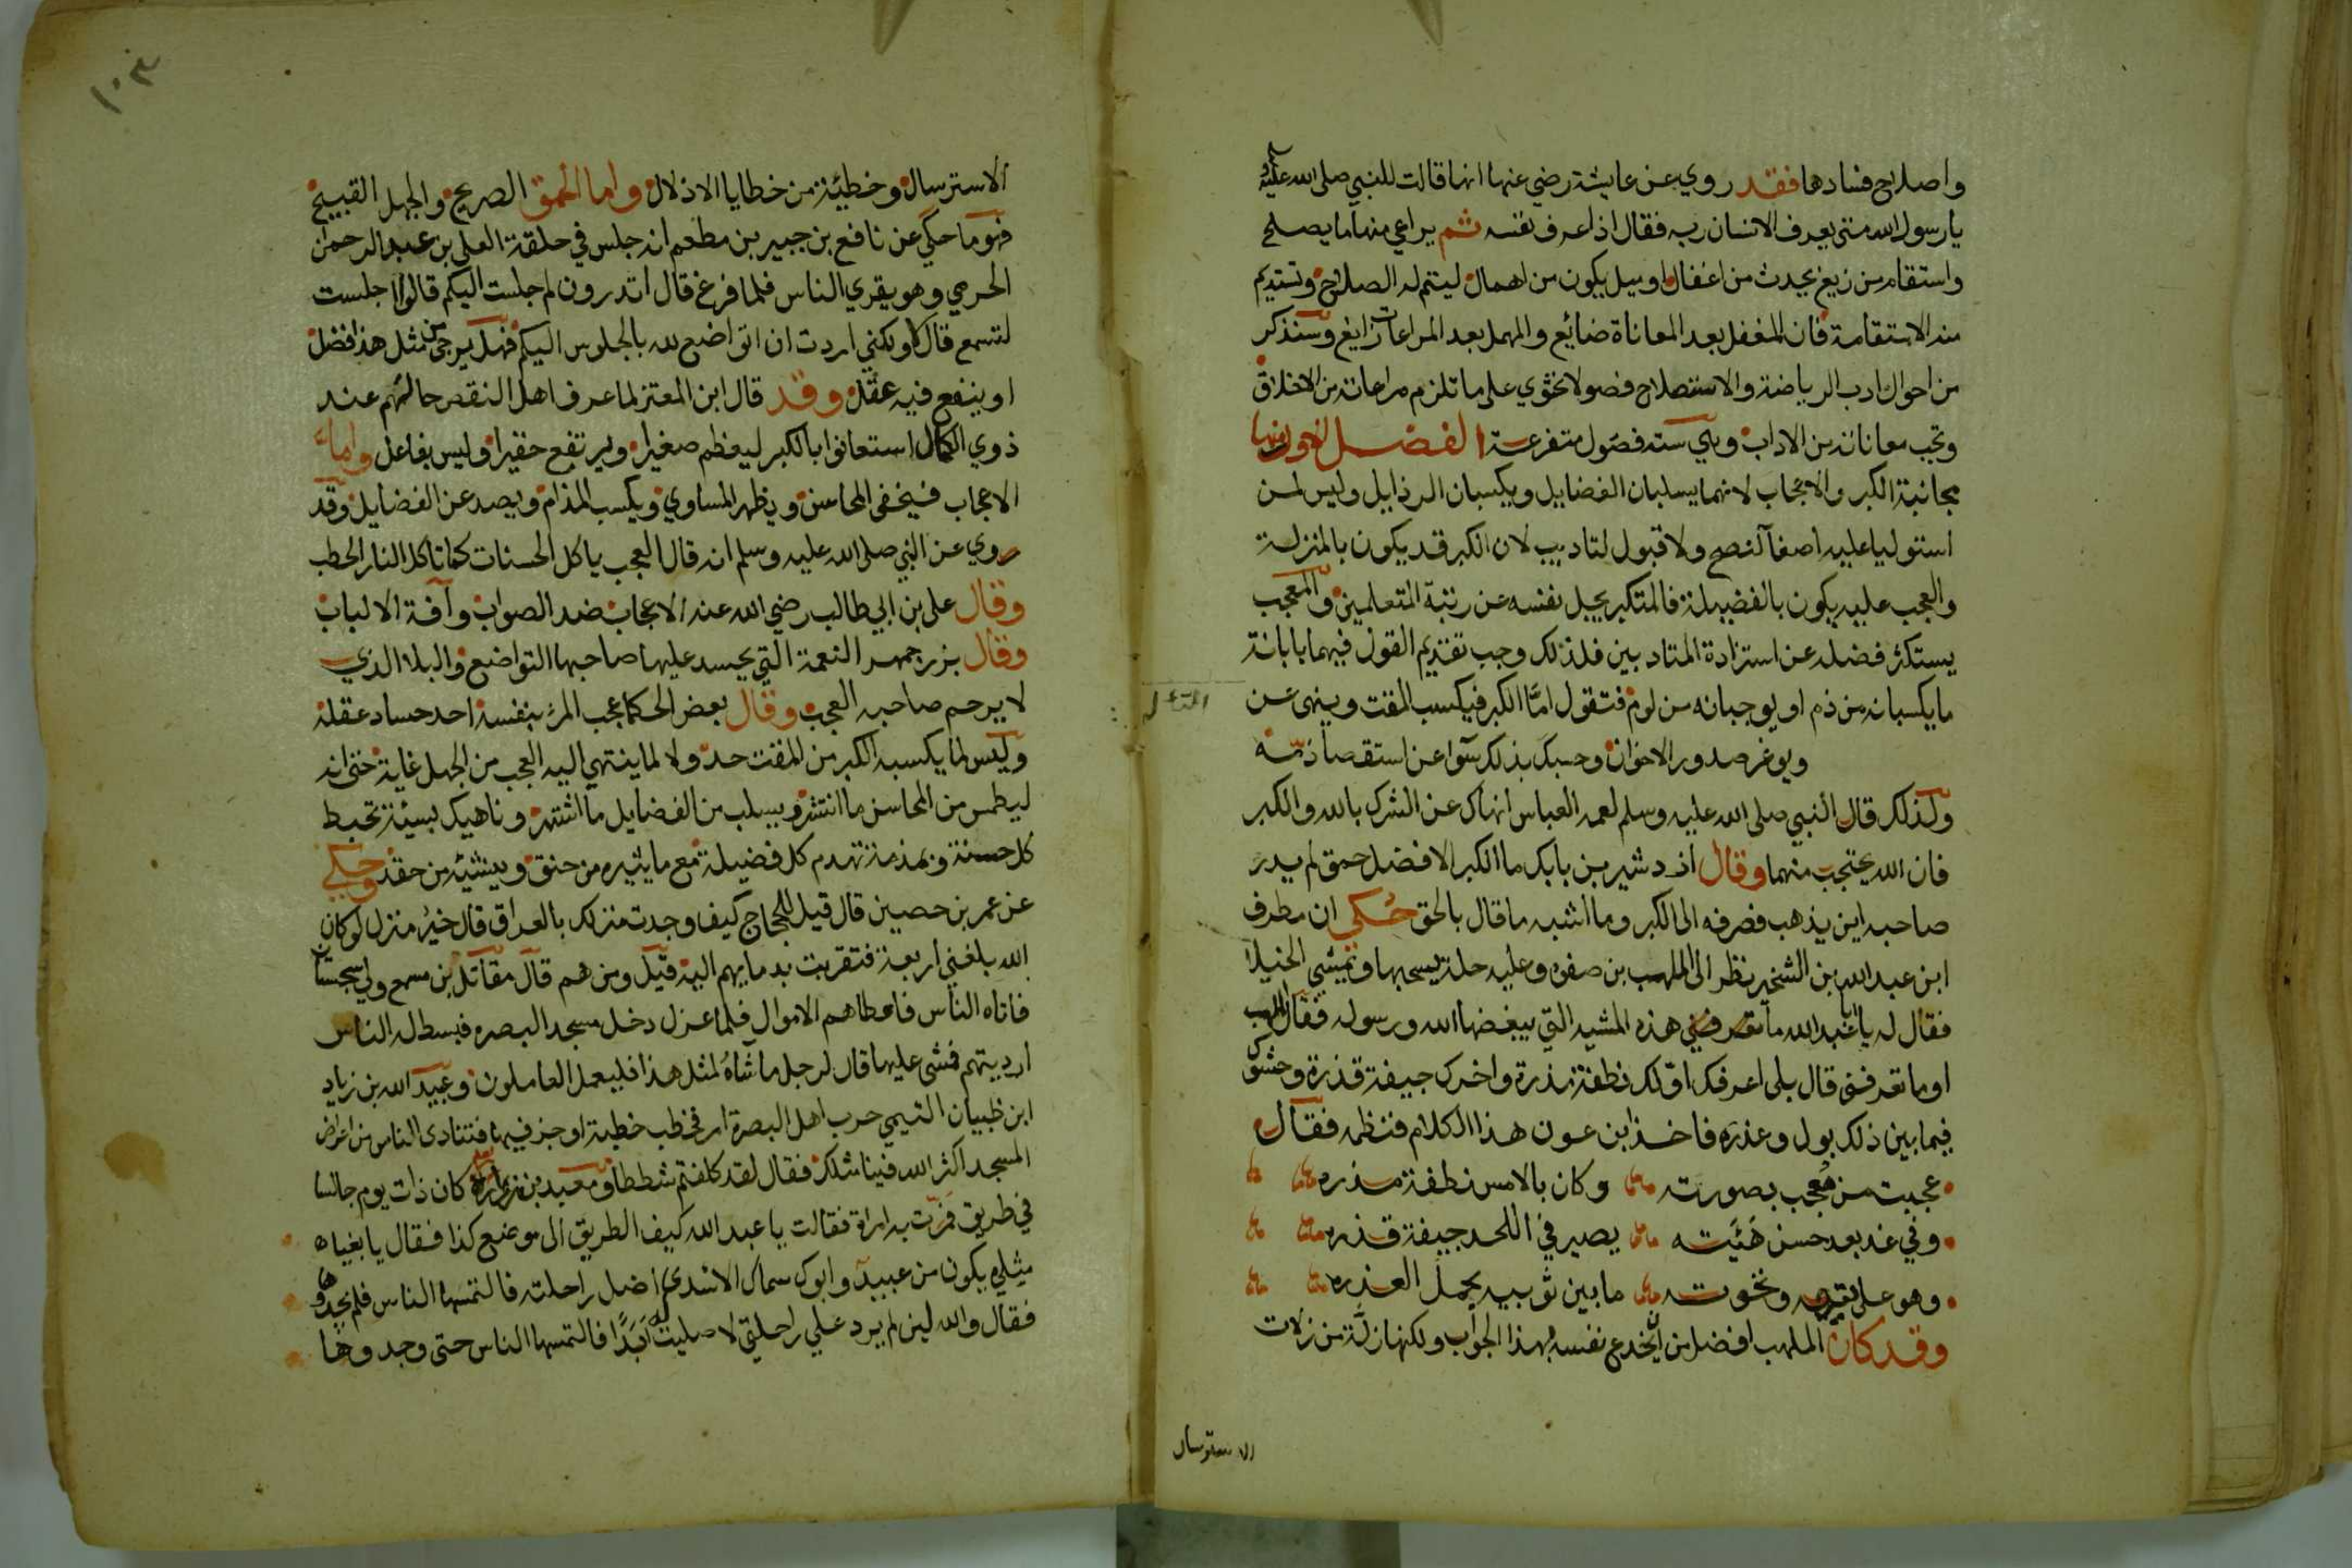 واصلاح فسادها فقد روي عن عايشة رضي عنها انها قالت للنبي صلى الله عليه وسلم
يا رسول الله متى يعرف الانسان ربه فقال اذا عرف نفسه ثم يراعي منها ما يصلح
واستقام من زيغ يحدث من اغفال او ميل يكون من اهمال ليتم له الصلاح وتستديم
منه الاستقامة فان المغفل بعد المعاناة ضايع والمهمل بعد المراعات زايغ وسنذكر
من احوال ادب الرياضة والاستصلاح فصولا تحتوي على ما تلزم مراعاته من الاخلاق
وتجب معاناته من الاداب وهي سته فصول متفرعة الفصل الاول منها
مجانبة الكبر والاعجاب لانهما يسلبان الفضايل ويكسبان الرذايل وليس لمن
استوليا عليه اصغآ لنصح ولا قبول لتاديب لان الكبر قد يكون بالمنزلة
والعجب عليه يكون بالفضيلة فالمتكبر يجل نفسه عن رتبة المتعلمين والمعجب
يستكثر فضله عن استزادة المتادبين فلذلك وجب تقديم القول فيهما بابانة
ما يكسبانه من ذم او يوجبانه من لوم فتقول امّا الكبر فيكسب المقت وينهى عن
ويوغر صدور الاخوان وحسبك بذلك سوا عن استقصا ذمه
ولذلك قال النبي صلى الله عليه وسلم لعمه العباس انهاك عن الشرك بالله والكبر
فان الله يحتجب منهما وقال اذدشير بن بابك ما الكبر الا فضل حمق لم يدر
صاحبه اين يذهب فصرفه الى الكبر وما اشبه ما قال بالحق حُكي ان مطرف
ابن عبد الله بن الشخير نظر الى المهلب بن صفره وعليه حلة يسحبها وتميشي الخيلا
فقال له يا ابا عبد الله ما هذه المشيه التي يبغضها الله ورسوله فقال المهلب
اوما تعرفنى قال بلى اعرفك اوّلك نطفة مذرة واخرك جيفة قذرة وحشوك
فيما بين ذلك بول وعذره فاخذ ابن عون هذا الكلام فنظمه فقال
عجبت من مُعجب بصورته وكان بالامس نطفة مذره
وفي غد بعد حسن هَيْئته يصير في اللحد جيفة قذره
وهو على تيهه ونخوته ما بين ثوبيه يحمل العذره
وقد كان المهلب افضل من ان يخدع نفسه بهذا الجواب ولكنها زلّة من زلات
الاسترسال
١٠٣
الاسترسال وخطيئة من خطايا الاذلال واما الحمق الصريح والجهل القبيح
فهو ما حكي عن نافع بن جبير بن مطعم انه جلس في حلقة العلى بن عبد الرحمن
الحرمي وهو يقري الناس فلما فرغ قال اتدرون لم جلست اليكم قالوا جلست
لتسمع قال لا ولكنني اردت ان اتواضع لله بالجلوس اليكم فهل يرجى من مثل هذا فضل
او ينفع فيه عقل وقد قال ابن المعتز لما عرف اهل النقص حالهم عند
ذوي الكمال استعانوا بالكبر ليعظم صغيرا ويرتفع حقيرا وليس بفاعل واما
الاعجاب فيخفى المحاسن ويظهر المساوي ويكسب المذام ويصد عن الفضايل وقد
روي عن النبي صلى الله عليه وسلم انه قال العجب ياكل الحسنات كما تاكل النار الحطب
وقال على بن ابي طالب رضي الله عنه الاعجاب ضد الصواب وآفة الالباب
وقال بزرجمهر النعمة التي يحسد عليها صاحبها التواضع والبلا الذي
لا يرحم صاحبه العجب وقال بعض الحكما عجب المرء بنفسه احد حساد عقله
وليس لما يكسبه الكبر من المقت حد ولا لما ينتهي اليه العجب من الجهل غاية حتى انه
ليطمس من المحاسن ما انتشر ويسلب من الفضايل ما اشتهر وناهيك بسيئة تحبط
كل حسنة وبمذمة تهدم كل فضيلة مع ما يثيره من حنق وينشيئه من حقد وحكي
عن عمر بن حصين قال قيل للحجاج كيف وجدت منزلك بالعراق قال خير منزل لو كان
الله بلغني اربعة فتقربت بدمايهم اليه قيل ومن هم قال مقاتل بن مسمع ولي سجستان
فاتاه الناس فاعطاهم الاموال فلما عزل دخل مسجد البصره فبسط له الناس
ارديتهم فمشى عليها قال لرجل ماشاهُ لمثل هذا فليعمل العاملون وعبيد الله بن زياد
ابن ظبيان التيمي حرب اهل البصرة امر فخطب خطبة اوجز فيها فتنادى الناس من اعراض
المسجد اكثر الله فينا مثلك فقال لقد كلفتم شططا ومعبد بن زراره كان ذات يوم جالسا
في طريق فمرّت به امراة فقالت يا عبد الله كيف الطريق الى موضع كذا فقال يا بغياه
مثلي يكون من عبيد وابوك سماك الاسدي اضل راحلته فالتمسها الناس فلم يجدوها
فقال والله لين لم يرد علي راحلتي لا صليت له ابَدًا فالتمسها الناس حتى وجدوها